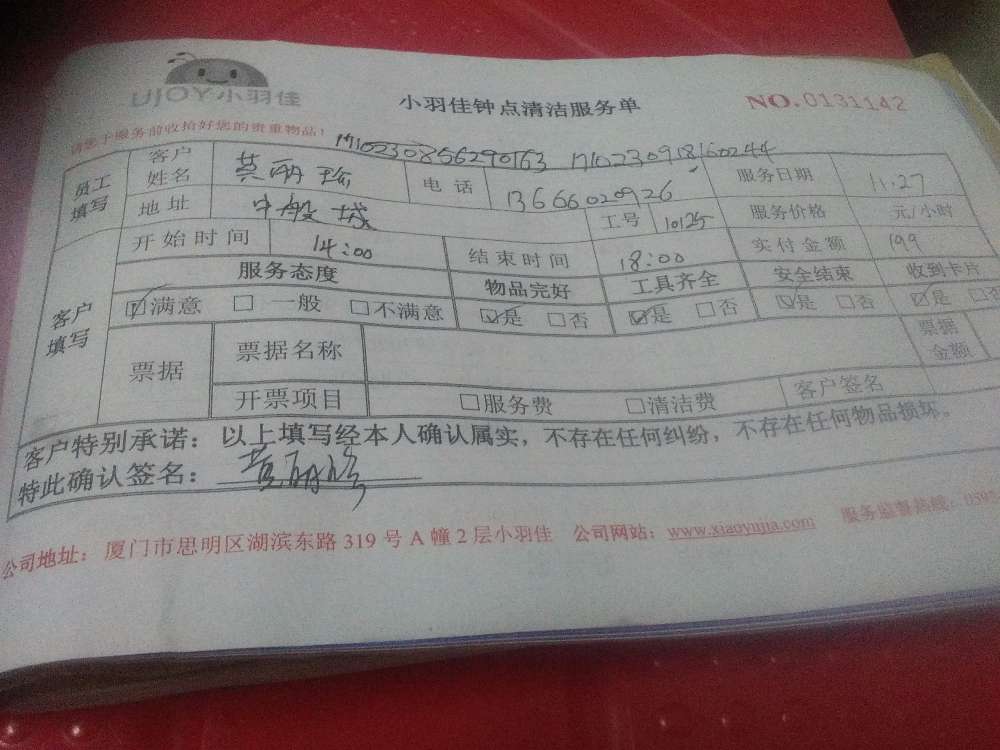 UJOY小羽佳
小羽佳钟点清洁服务单
NO.0131142
请您于服务前收拾好您的贵重物品！
员工填写
客户姓名
电话
13666020926
服务日期
11.27
地址
工号
服务价格
元/小时
客户填写
开始时间
14:00
结束时间
18:00
实付金额
199
服务态度
物品完好
工具齐全
安全结束
收到卡片
☑满意 □一般 □不满意
☑是 □否
☑是 □否
☑是 □否
☑是 □否
票据
票据名称
票据金额
开票项目
□服务费 □清洁费
客户签名
客户特别承诺：以上填写经本人确认属实，不存在任何纠纷，不存在任何物品损坏。
特此确认签名：
公司地址：厦门市思明区湖滨东路 319 号 A 幢 2 层小羽佳 公司网站：www.xiaoyujia.com 服务监督热线：